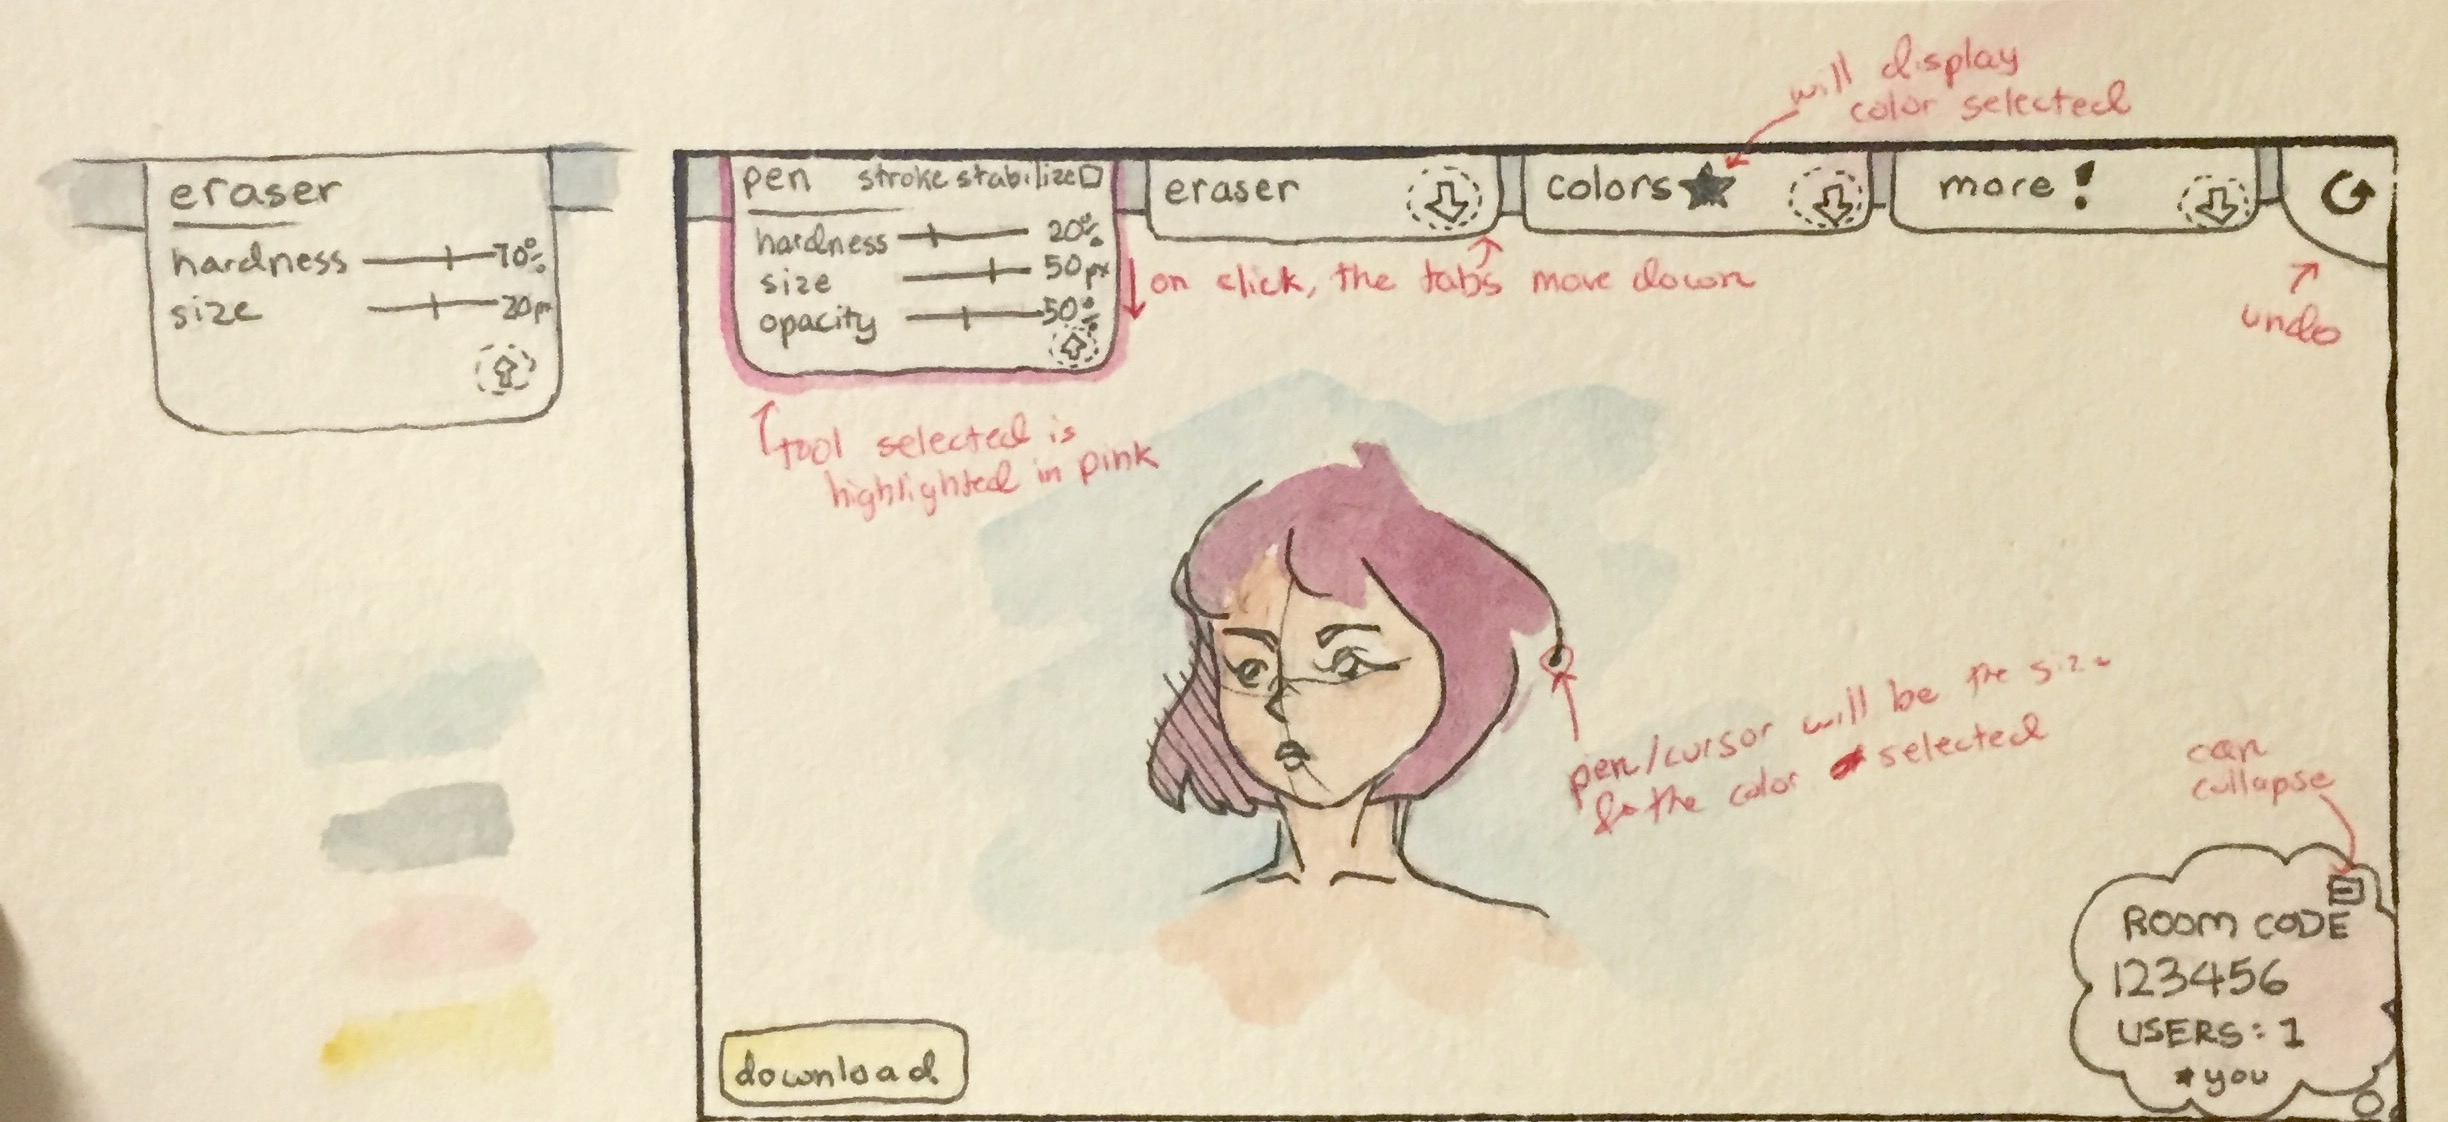 will display
color selected
eraser
hardness 70%
size 20p
pen stroke stabilize
hardness 20%
size 50px
opacity 50%
eraser
colors
more!
on click, the tabs move down
undo
tool selected is
highlighted in pink
pen/cursor will be the size
& the color selected
can
collapse
ROOM CODE
123456
USERS: 1
★you
download